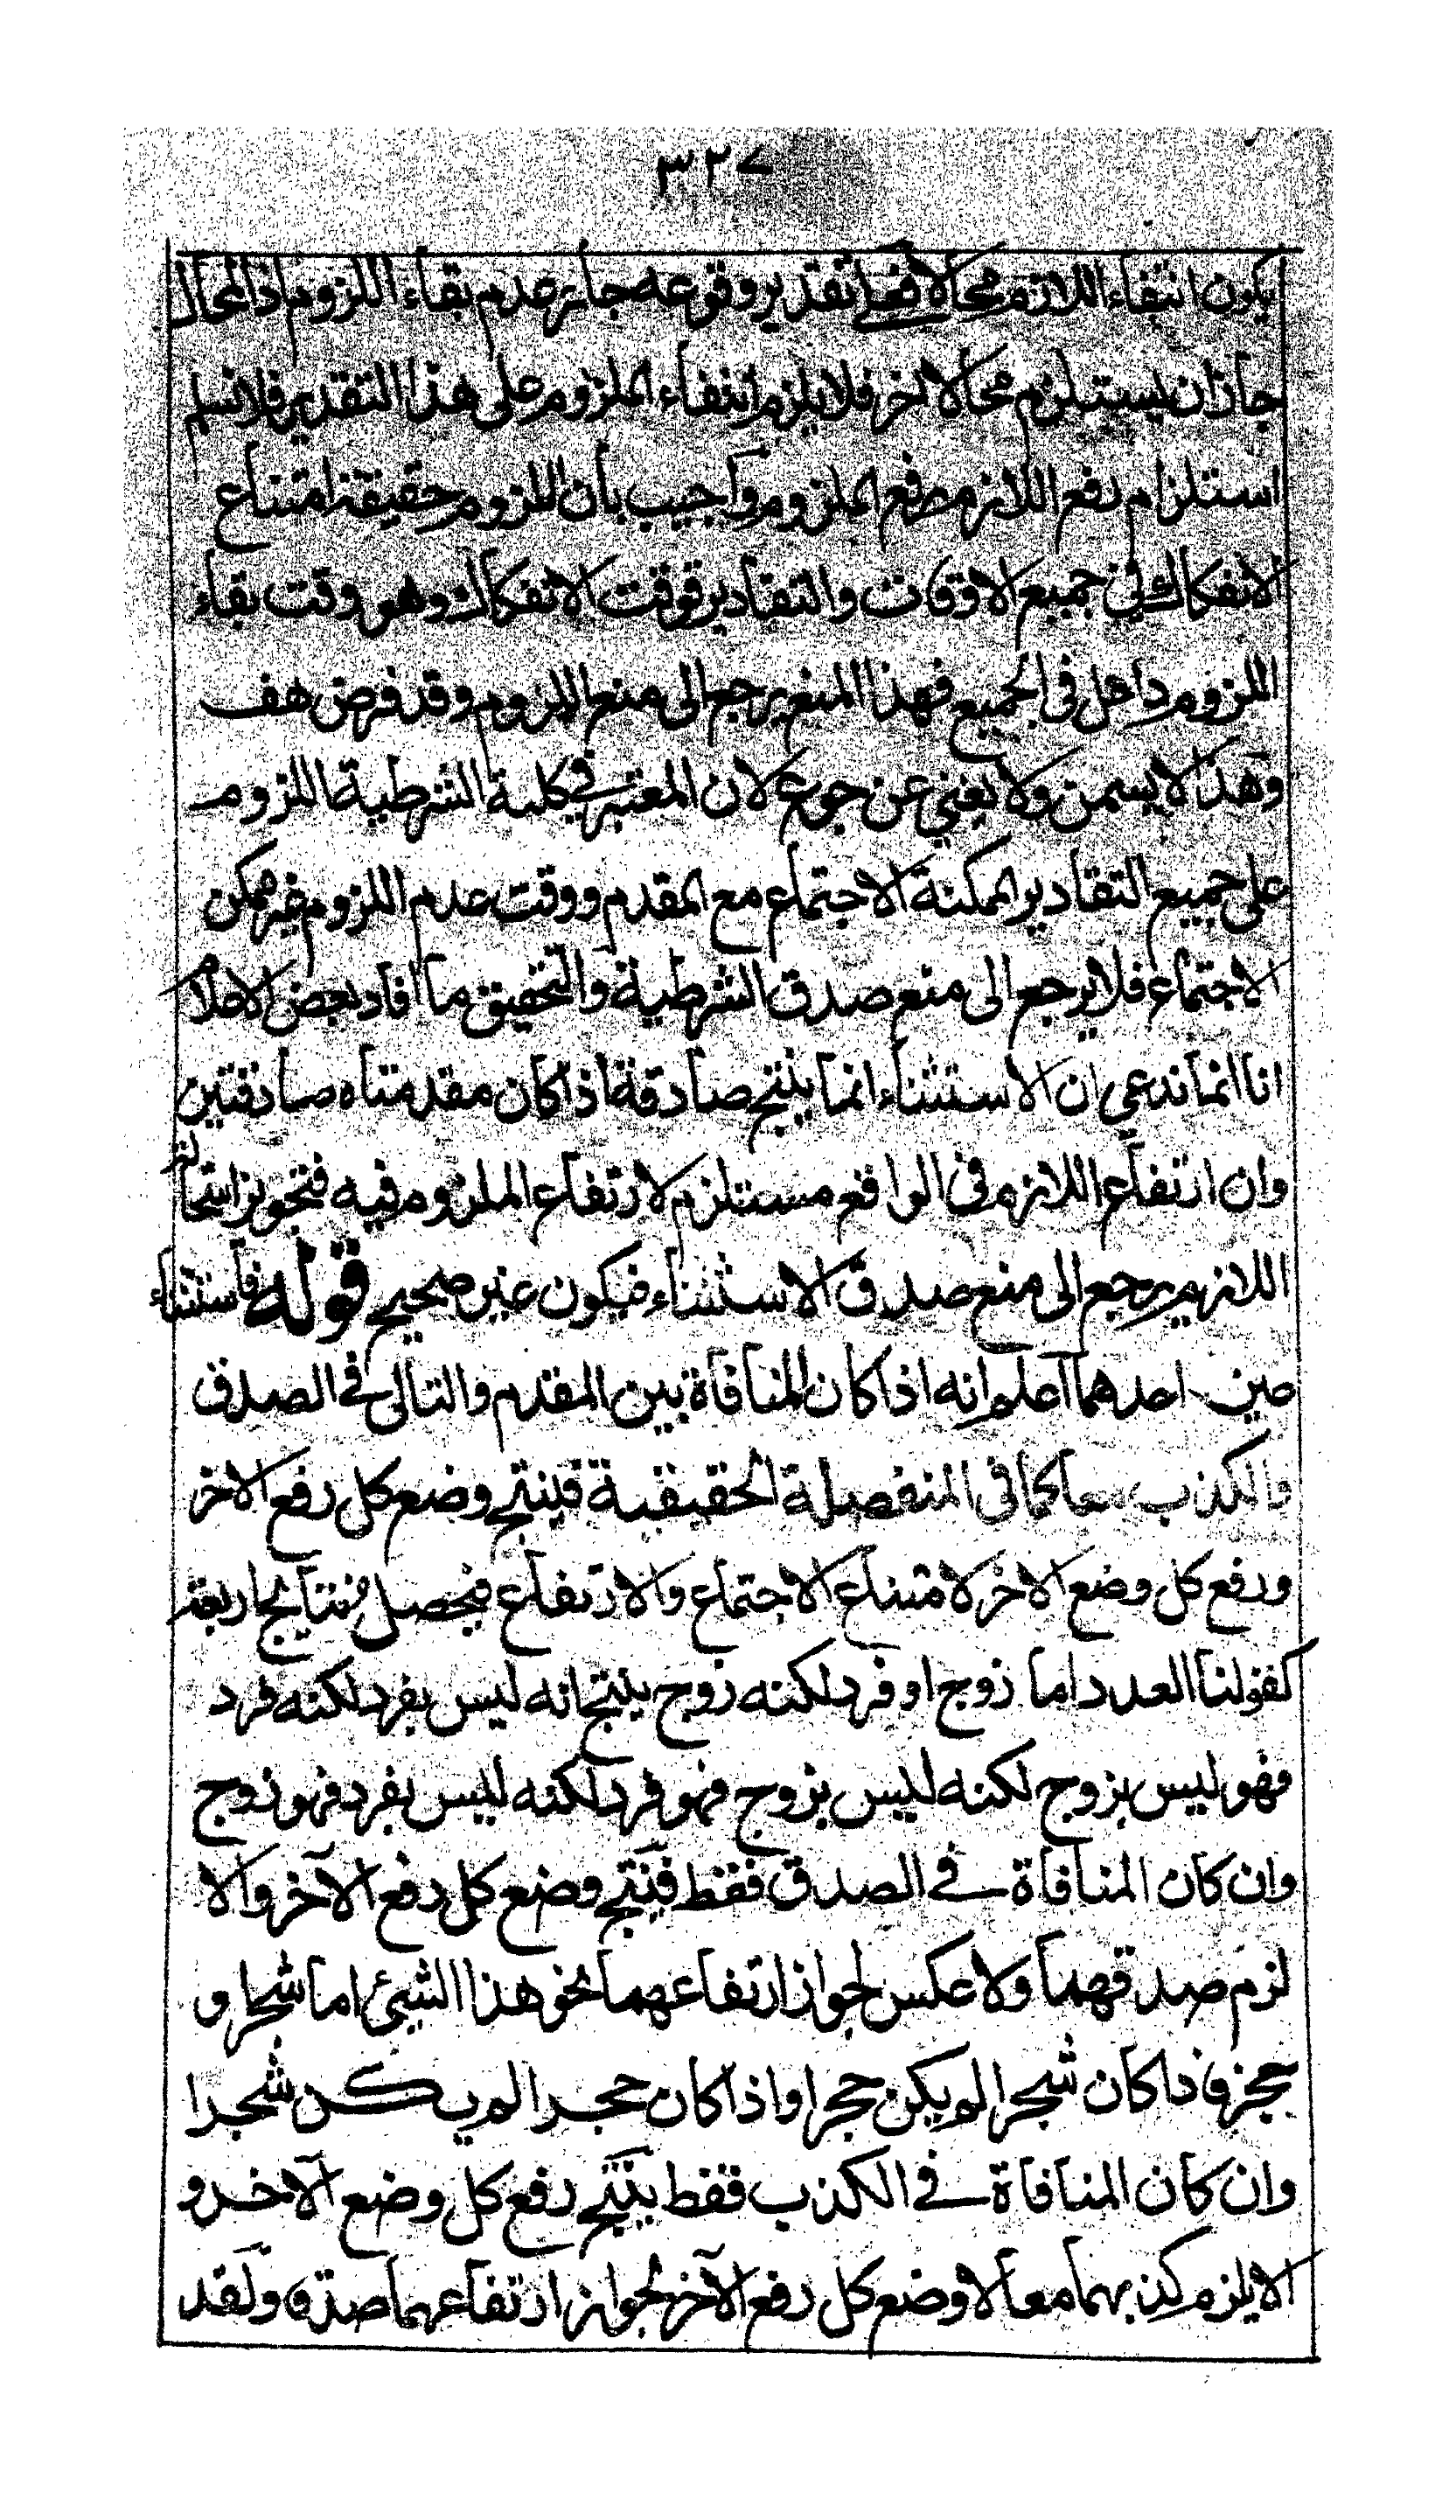 ٣٢٧
يكون انتفاء اللازم محالا فعلى تقدير وقوعه جاز عدم بقاء اللزوم اذ المحال
جاز ان يستلزم محالا اخر فلا يلزم انتفاء الملزوم على هذا التقدير فلا نسلم
استلزام رفع اللازم رفع الملزوم واجيب بان اللزوم حقيقة امتناع
الانفكاك في جميع الاوقات والتقادير فوقت الانفكاك وهو وقت بقاء
اللزوم داخل في الجميع فهذا المنع يرجع الى منع اللزوم وقد فرض هف
وهذا لا يسمن ولا يغني عن جوع لان المعتبر في كلية الشرطية اللزوم
على جميع التقادير الممكنة الاجتماع مع المقدم ووقت عدم اللزوم غير ممكن
الاجتماع فلا يرجع الى منع صدق الشرطية والتحقيق ما افاد بعض الاعلام
انا انما ندعي ان الاستثناء انما ينتج صادقة اذا كان مقدمتاه صادقتين
وان ارتفاع اللازم في الواقع مستلزم لارتفاع الملزوم فيه فتجويز استحالة
اللازم يرجع الى منع صدق الاستثناء فيكون غير صحيح قوله فاستثناء
عين احدهما اعلم انه اذا كان المنافاة بين المقدم والتالى في الصدق
والكذب معا كما في المنفصلة الحقيقية فينتج وضع كل رفع الاخر
ورفع كل وضع الاخر لامتناع الاجتماع والارتفاع فيحصل نتايج اربعة
كقولنا العدد اما زوج او فرد لكنه زوج ينتج انه ليس بفرد لكنه فرد
فهو ليس بزوج لكنه ليس بزوج فهو فرد لكنه ليس بفرد فهو زوج
وان كان المنافاة في الصدق فقط فينتج وضع كل رفع الآخر والا
لزم صدقهما ولا عكس لجواز ارتفاعهما نحو هذا الشيئ اما شجر او
حجر فاذا كان شجرا لم يكن حجرا واذا كان حجرا لم يكن شجرا
وان كان المنافاة في الكذب فقط ينتج رفع كل وضع الآخر و
الا يلزم كذبهما معا لا وضع كل رفع الآخر لجواز ارتفاعهما صدق ولقد